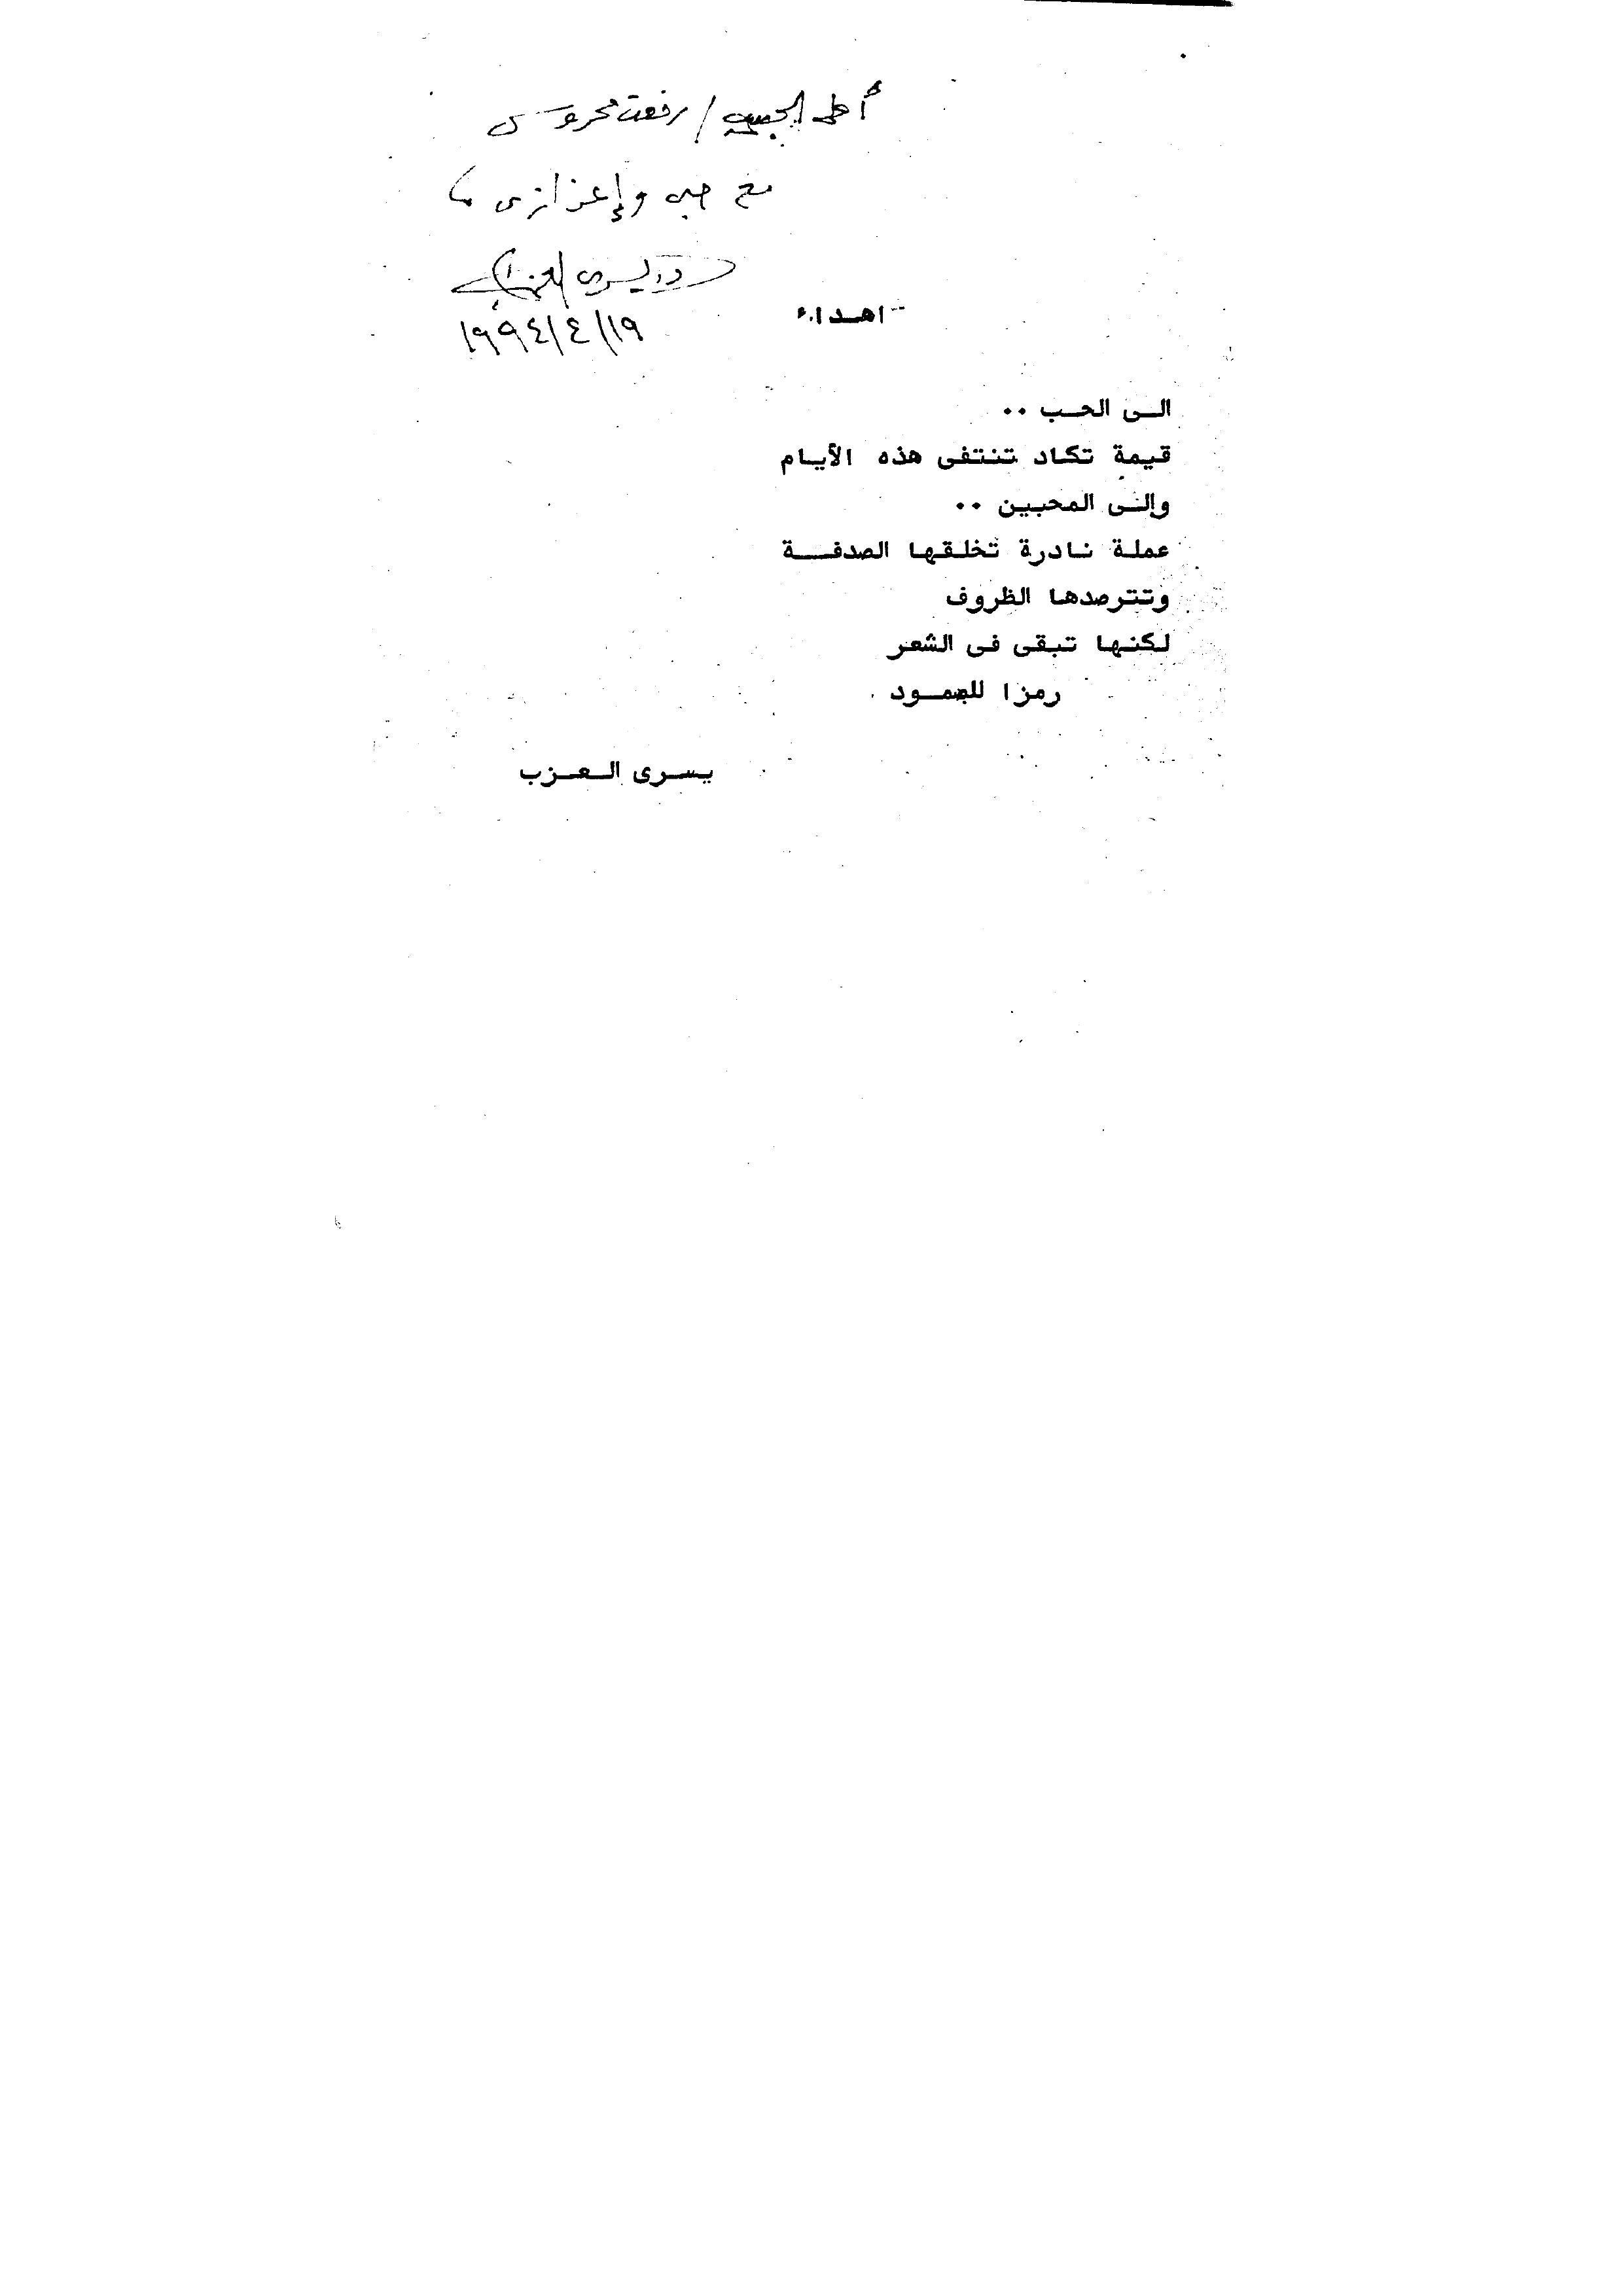 أخى الحبيب / رفعت محروس
مع حبى وإعزازى
د. يسرى العزب
١٩٩٤/٤/١٩
اهداء
الى الحب ..
قيمة تكاد تنتفى هذه الأيام
وإلى المحبين ..
عملة نادرة تخلقها الصدفة
وتترصدها الظروف
لكنها تبقى فى الشعر
رمزا للصمود .
يسرى العزب